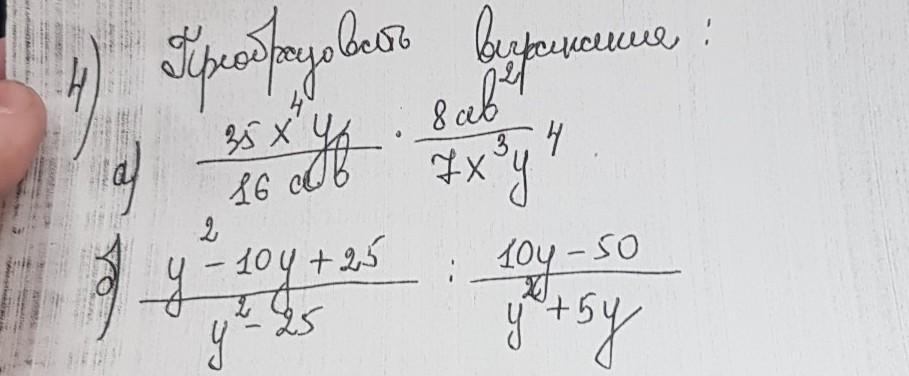 4) Преобразовать выражения:
а) 35x⁴y / 16ab · 8ab² / 7x³y⁴
б) y² - 10y + 25 / y² - 25 : 10y - 50 / y² + 5y